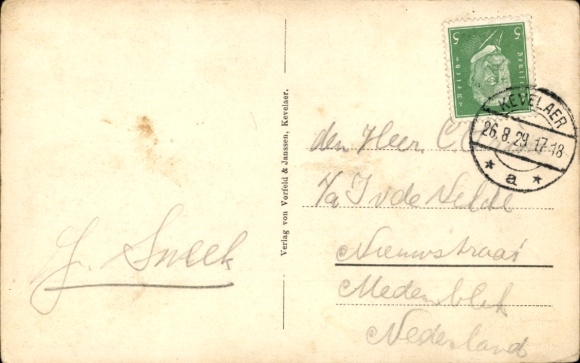 G. Sneek
Verlag von Vorfeld & Janssen, Kevelaer.
5 5
Deutsches Reich
KEVELAER
26.8.29.17-18
* a *
den Heer C.
p/a J v de Velde
Nieuwstraat
Medemblik
Nederland